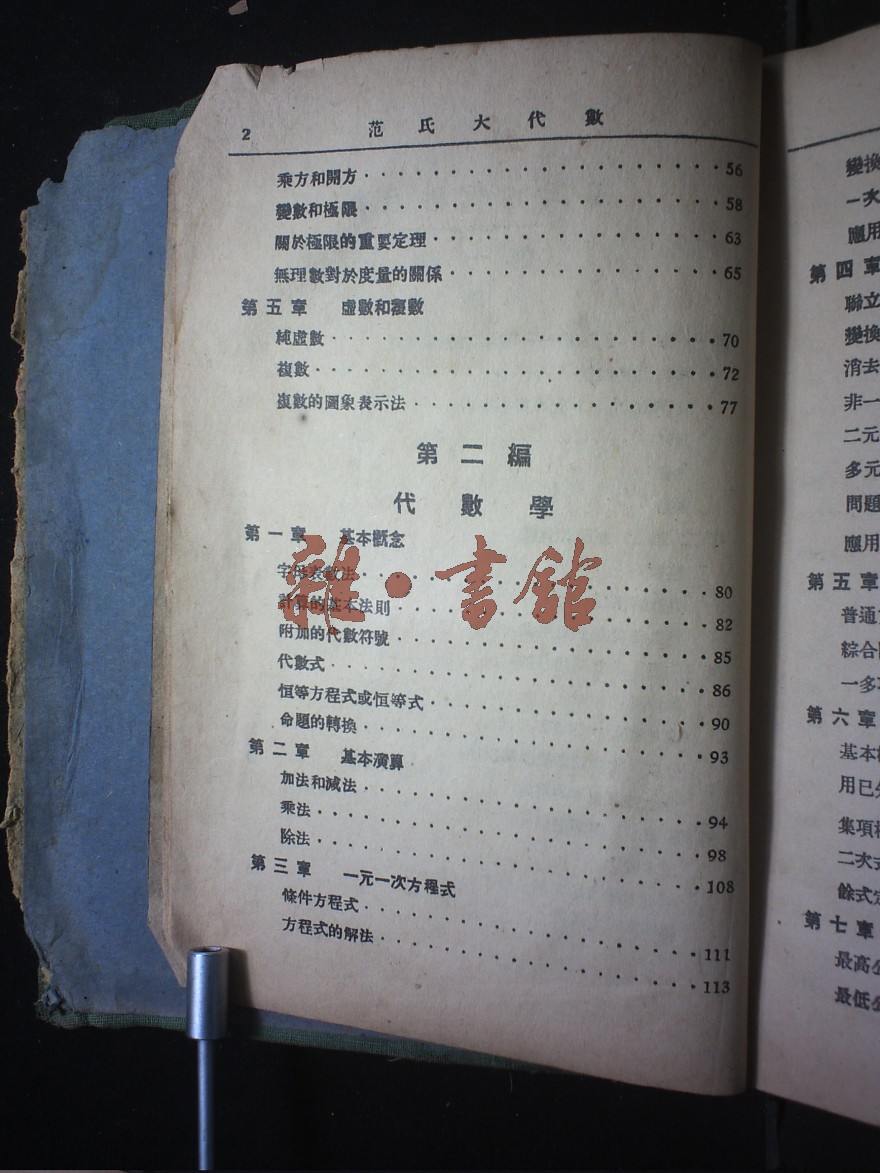 2 范氏大代數
乘方和開方 56
變數和極限 58
關於極限的重要定理 63
無理數對於度量的關係 65
第五章 虛數和複數
純虛數 70
複數 72
複數的圖象表示法 77
第二編
代數學
第一章 基本概念
字母表數法 80
計算的基本法則 82
附加的代數符號 85
代數式 86
恒等方程式或恒等式 90
命題的轉換 93
第二章 基本演算
加法和減法 94
乘法 98
除法 108
第三章 一元一次方程式
條件方程式 111
方程式的解法 113
雜·書館
變換
一次
應用
第四章
聯立
變換
消去
非一
二元
多元
問題
應用
第五章
普通
綜合
一多
第六章
基本
用已
集項
二次式
餘式定
第七章
最高公
最低公